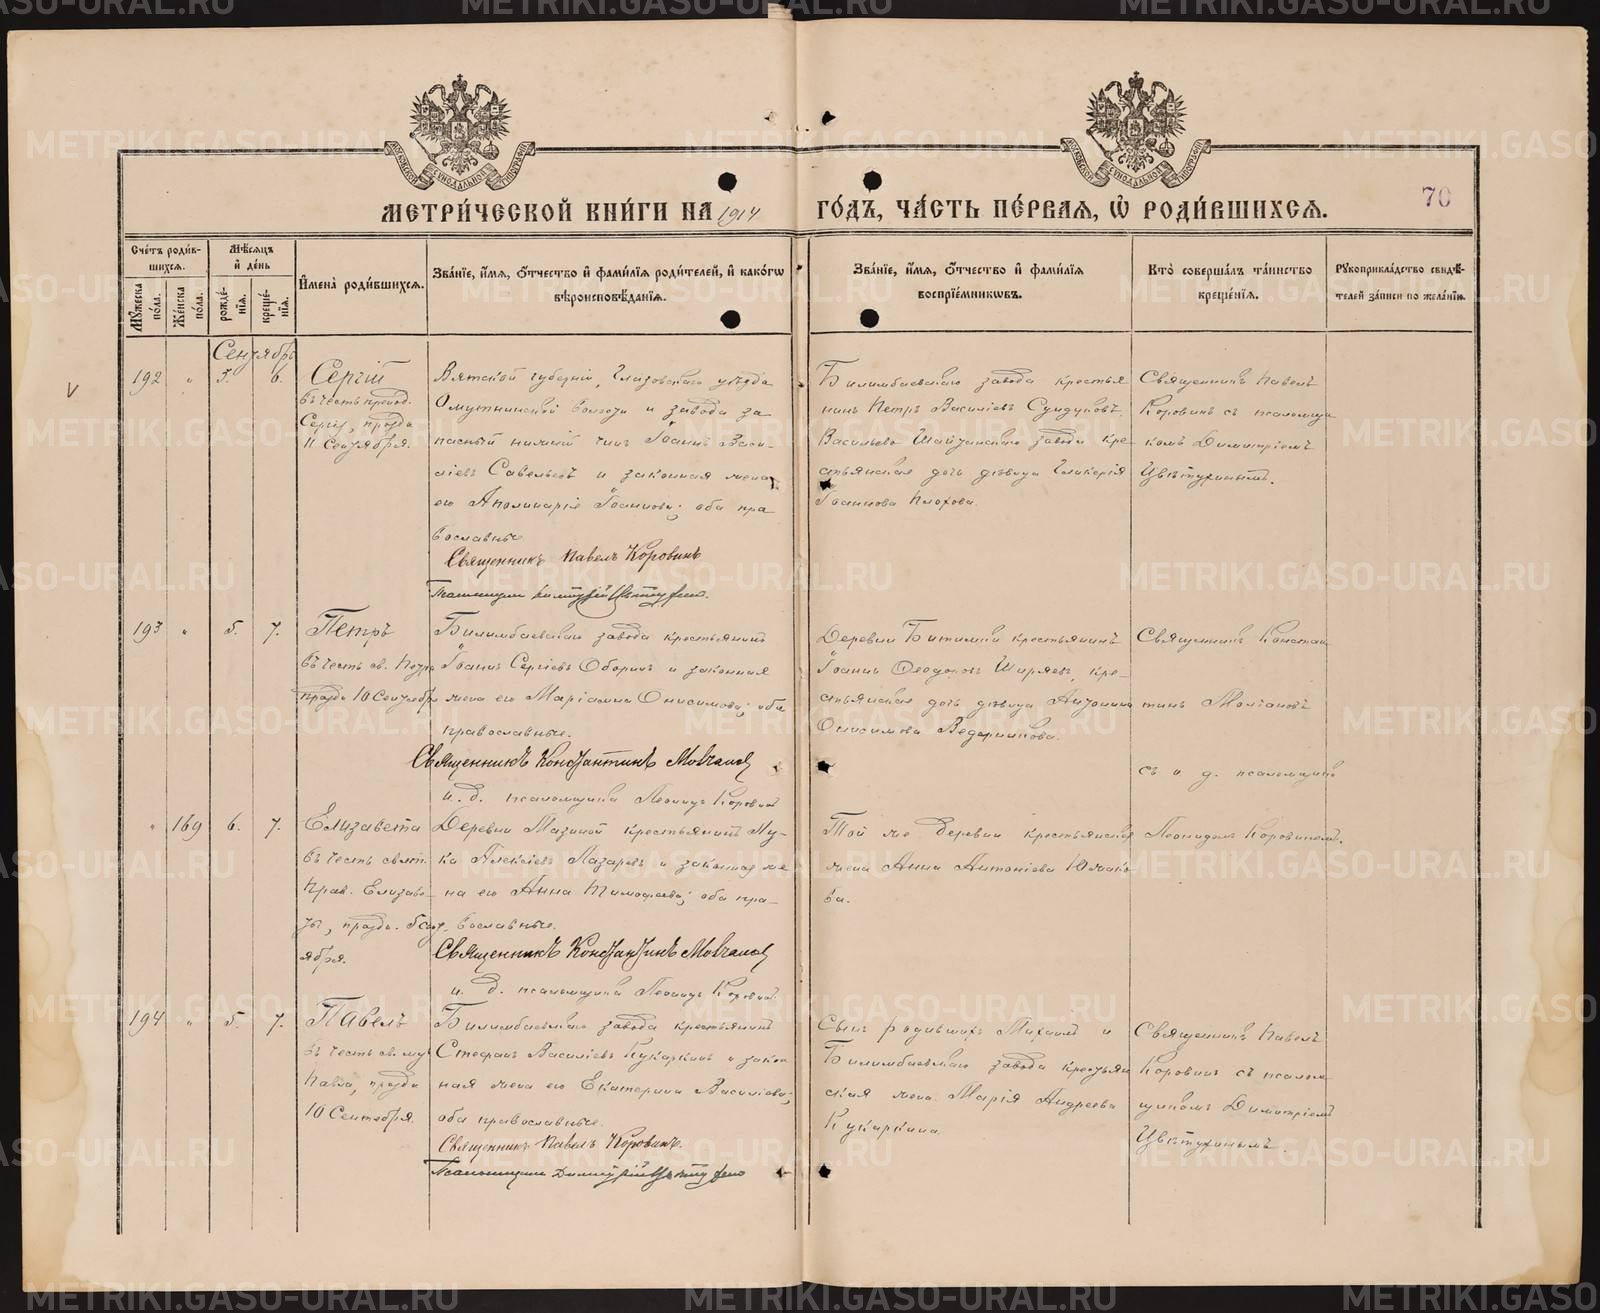 МЕТРИ́ЧЕСКОЙ КНИ́ГИ НА 1914 ГО́ДЪ, ЧА́СТЬ ПЕ́РВАЯ, Ѡ РОДИ́ВШИХСЯ.
70
Сче́тъ роди́в-
шихся.
Му́жеска по́ла.
Же́нска по́ла.
Мѣ́сяцъ
и҆ де́нь
рожде́-
нїя.
креще́-
нїя.
И҆мена̀ роди́вшихся.
Зва́нїе, и҆́мя, ѻ҆́тчество и҆ фами́лїя роди́телей, и҆ како́гѡ
вѣроисповѣ́данїя.
Зва́нїе, и҆́мя, ѻ҆́тчество и҆ фами́лїя
воспрїе́мникѡвъ.
Кто̀ соверша́лъ та́инство
креще́нїя.
Рꙋкоприкла́дство свидѣ́-
телей за́писи по жела́нїю.
Сентябрь
192 " 5. 6.
Сергій
въ честь препод.
Сергія, празд.
11 Сентября.
Вятской губерніи, Глазовскаго уѣзда
Омутнинской волости и завода за-
пасный нижній чинъ Іоаннъ Васи-
ліевъ Савельевъ и законная жена
его Аполинарія Іоаннова; оба пра-
вославные
Священникъ Павелъ Коровинъ
Псаломщикъ Димитрій Цвѣтухинъ.
Билимбаевскаго завода крестья-
нинъ Петръ Василіевъ Сундуковъ,
Васильево-Шайтанскаго завода кре-
стьянская дочь дѣвица Гликерія
Іоаннова Плохова.
Священникъ Павелъ
Коровинъ съ псаломщи-
комъ Димитріемъ
Цвѣтухинымъ.
193 " 5. 7.
Петръ
въ честь св. Петра
празд. 10 Сентября
Билимбаевскаго завода крестьянинъ
Іоаннъ Сергіевъ Оборинъ и законная
жена его Маріамна Онисимова; оба
православные.
Священникъ Константинъ Молчановъ
и. д. псаломщика Леонидъ Коровинъ
Деревни Битимки крестьянинъ
Іоаннъ Ѳеодоровъ Ширяевъ, кре-
стьянская дочь дѣвица Антонина
Онисимова Ведерникова.
Священникъ Констан-
тинъ Молчановъ
съ и. д. псаломщика
Леонидомъ Коровинымъ.
" 169 6. 7.
Елизавета
въ честь свят.
прав. Елизаве-
ты, празд. 5 Сент-
ября.
Деревни Мазиной крестьянинъ Лу-
ка Алексіевъ Лазаревъ и законная же-
на его Анна Тимофеева; оба пра-
вославные.
Священникъ Константинъ Молчановъ
и. д. псаломщика Леонидъ Коровинъ
Той же деревни крестьянская
жена Анна Антоніева Юмако-
ва.
194 " 5. 7.
Павелъ
въ честь св. му.
Павла, празд.
10 Сентября.
Билимбаевскаго завода крестьянинъ
Стефанъ Василіевъ Кукаркинъ и закон-
ная жена его Екатерина Василіева;
оба православные.
Священникъ Павелъ Коровинъ.
Псаломщикъ Димитрій Цвѣтухинъ
Сынъ родившихъ Михаилъ и
Билимбаевскаго завода крестьян-
ская жена Марія Андреева
Кукаркина
Священникъ Павелъ
Коровинъ съ псалом-
щикомъ Димитріемъ
Цвѣтухинымъ.
METRIKI.GASO-URAL.RU